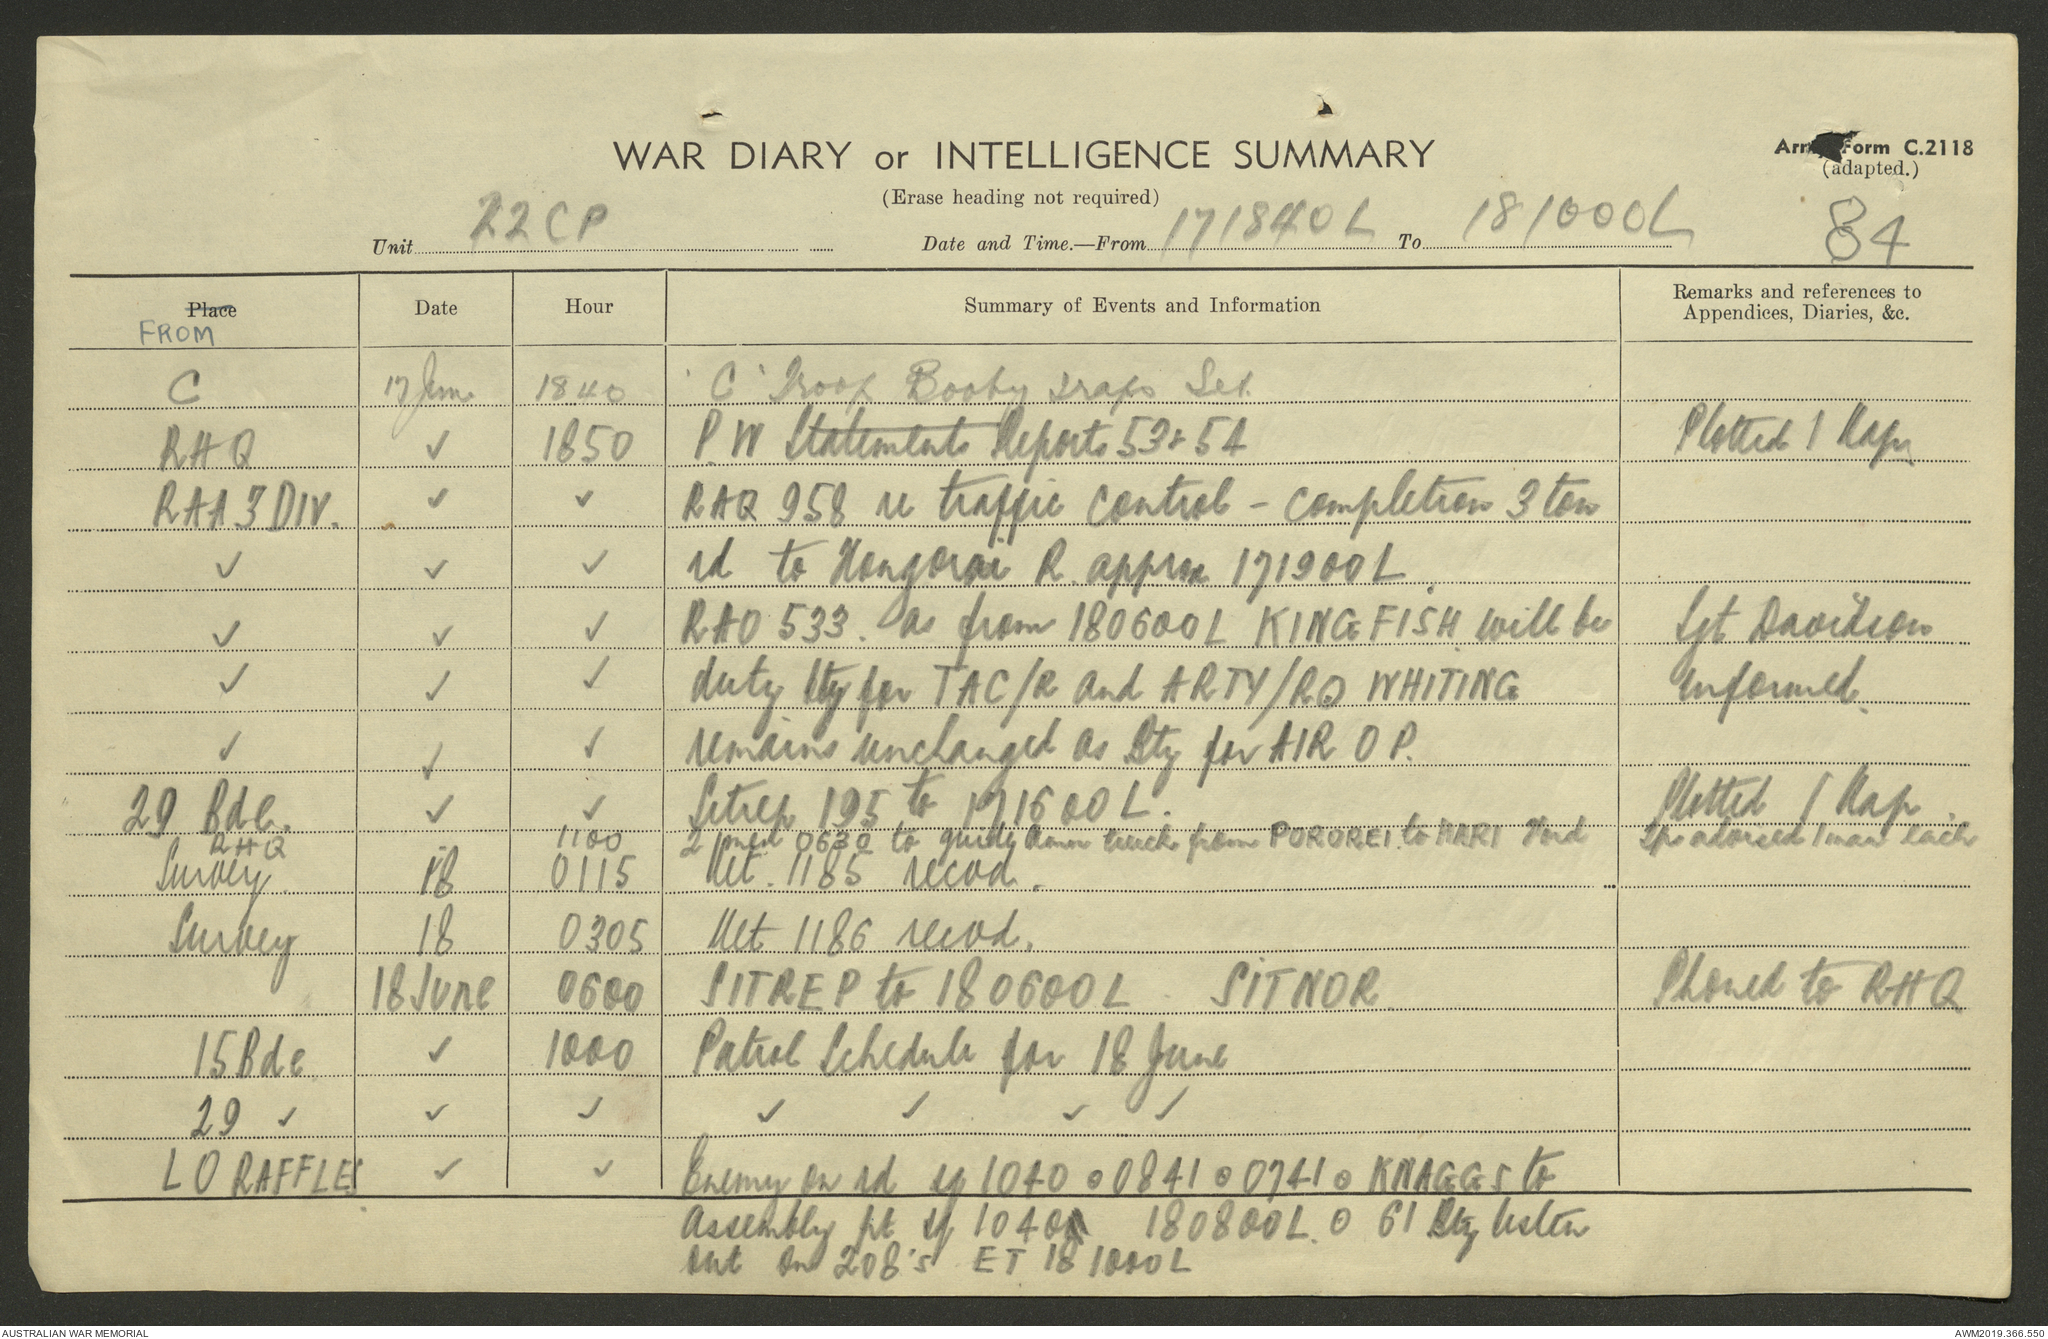 WAR DIARY or INTELLIGENCE SUMMARY
Army Form C.2118
(Erase heading not required)
(adapted.)
Unit 22CP Date and Time.—From 171840L To 181000L 84
Place Date Hour Summary of Events and Information Remarks and references to Appendices, Diaries, &c.
FROM
C 17 June 1840 'C' Troop Booby Traps Set.
RHQ ✓ 1850 P.W Statements Reports 53 & 54 Plotted I Map
RAA 3 DIV. ✓ ✓ RAQ 958 re traffic control - completion 3 ton
✓ ✓ ✓ rd to Hongorai R. approx 171900L.
✓ ✓ ✓ RAO 533. As from 180600L KINGFISH will be Sgt Davidson
✓ ✓ ✓ duty Bty for TAC/R and ARTY/RQ WHITING informed.
✓ ✓ ✓ remains unchanged as Bty for AIR OP.
29 Bde. ✓ ✓ Sitrep 195 to 171600L. Plotted I Map
RHQ 1100 2 men 0630 to guide Amm truck from POROREI to MARI Ford advised 1 man each
Survey 18 0115 Met. 1185 recvd.
Survey 18 0305 Met 1186 recvd.
18 June 0600 SITREP to 180600L SITNOR Phoned to RHQ
15 Bde ✓ 1000 Patrol Schedule for 18 June
29 ✓ ✓ ✓ ✓ ✓ ✓ ✓
LO RAFFLES ✓ ✓ Enemy on rd sq 1040 o 0841 o 0741 o KNAGGS to
Assembly pt sq 1040 180800L. o 61 Bty listen
out on 208's ET 181000L
AUSTRALIAN WAR MEMORIAL
AWM2019.366.550